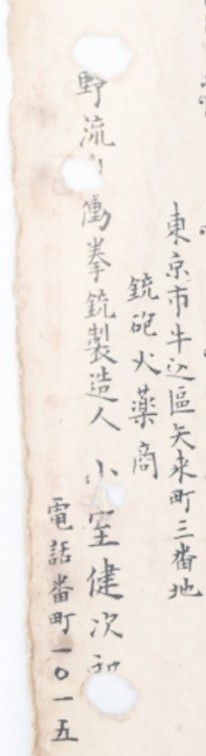 東京市牛込區矢來町三番地
銃砲火薬商
野流 働拳銃製造人 小室健次
電話番町一〇一五